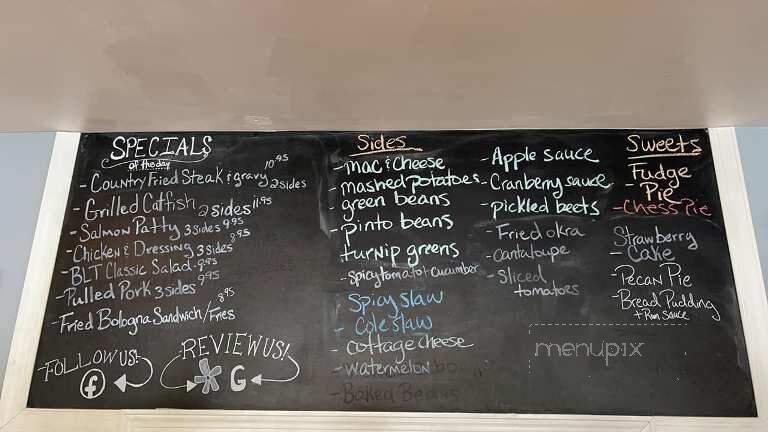 SPECIALS
of the day
- Country Fried Steak & gravy 10.95
2 sides
- Grilled Catfish 2 sides 11.95
- Salmon Patty 3 sides 9.95
- Chicken & Dressing 3 sides 8.95
- BLT Classic Salad - 9.95
- Pulled Pork 3 sides 9.95
- Fried Bologna Sandwich/Fries 8.95
FOLLOW US!
REVIEW US!
G
Sides
- mac & cheese
- mashed potatoes
- green beans
- pinto beans
- turnip greens
- spicy tomato & cucumber
- Spicy slaw
- Cole slaw
- cottage cheese
- watermelon
- Baked Beans
- Apple sauce
- Cranberry sauce
- pickled beets
- Fried okra
- cantaloupe
- Sliced
tomatoes
Sweets
Fudge
- Pie
- Chess Pie
Strawberry
- Cake
- Pecan Pie
- Bread Pudding
+ Rum Sauce
menupix